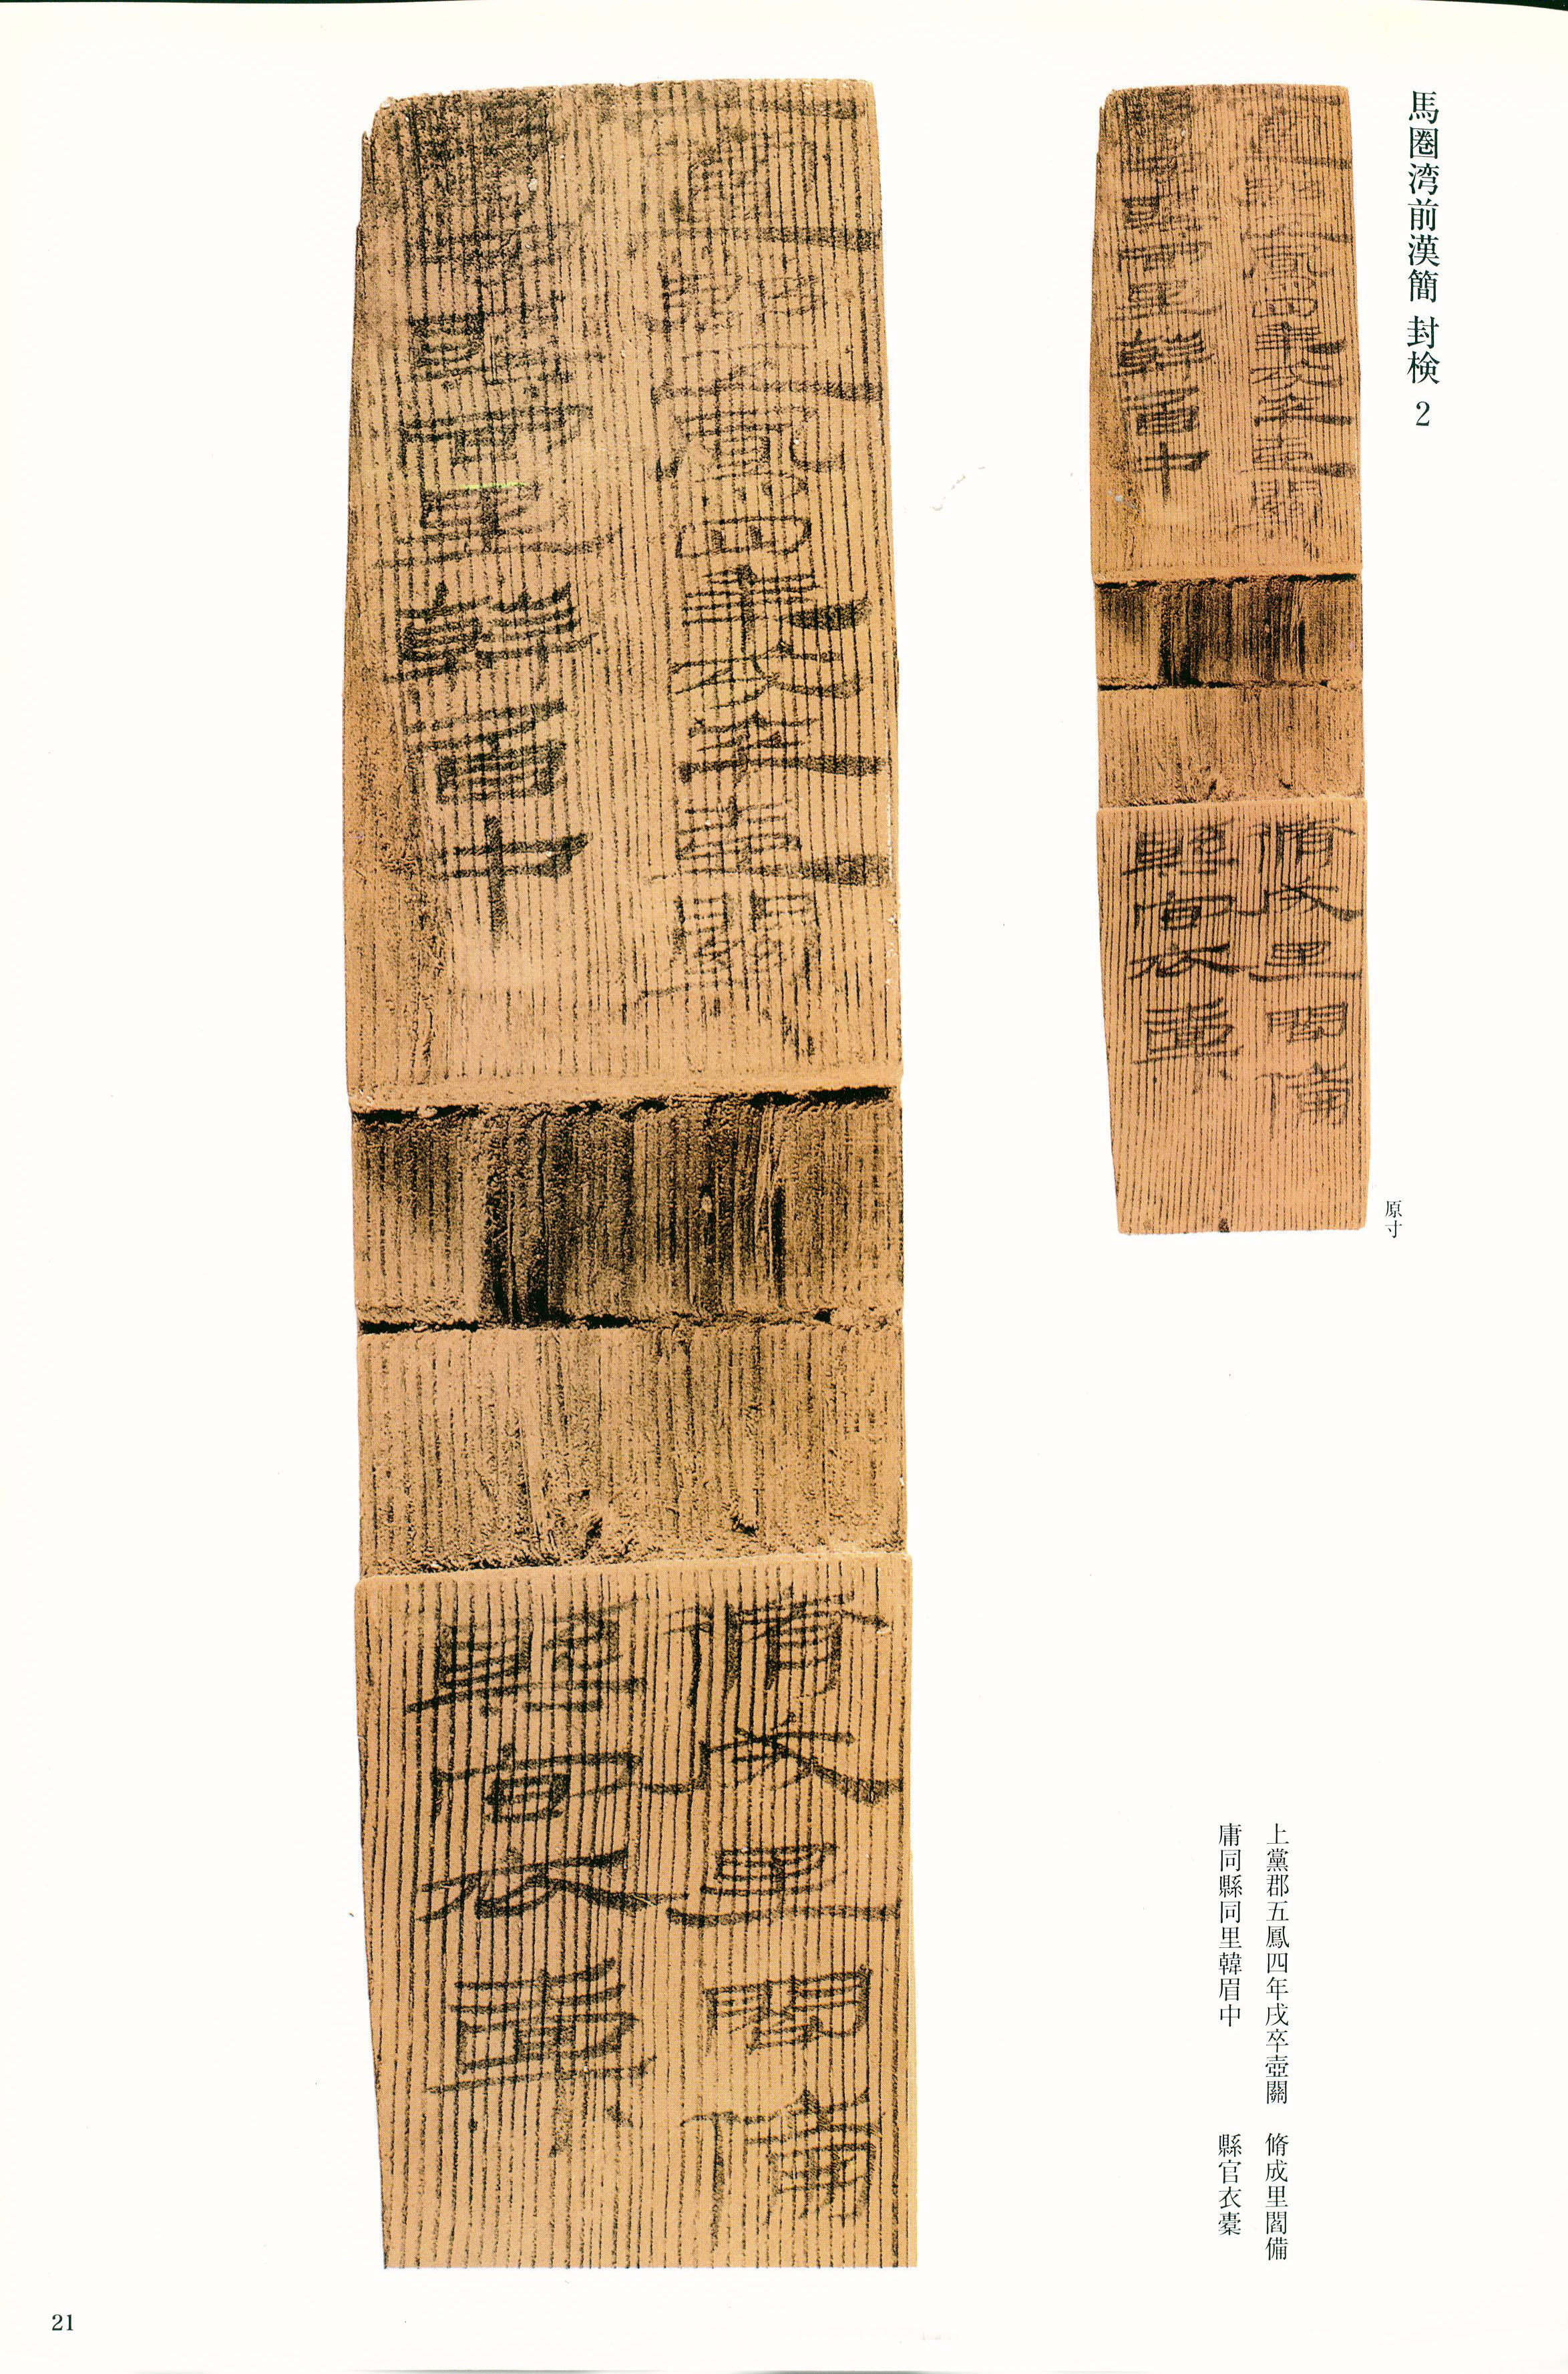 馬圏湾前漢簡 封検 2
原寸
上黨郡五鳳四年戍卒壺關 脩成里閻備
庸同縣同里韓眉中 縣官衣橐
21